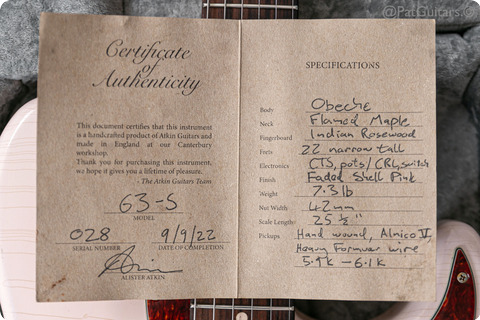 @FatGuitars ©
Certificate
of
Authenticity
This document certifies that this instrument
is a handcrafted product of Atkin Guitars and
made in England at our Canterbury
workshop.
Thank you for purchasing this instrument,
we hope it gives you a lifetime of pleasure.
- The Atkin Guitars Team
63-S
MODEL
028 9/9/22
SERIAL NUMBER DATE OF COMPLETION
Atkin
ALISTER ATKIN
SPECIFICATIONS
Body Obeche
Neck Flamed Maple
Fingerboard Indian Rosewood
Frets 22 narrow tall
Electronics CTS, pots/CRL, switch
Finish Faded Shell Pink
Weight 7.3 lb
Nut Width 42mm
Scale Length 25 ½"
Pickups Hand wound, Alnico V,
Heavy Formvar wire
5.9k - 6.1k